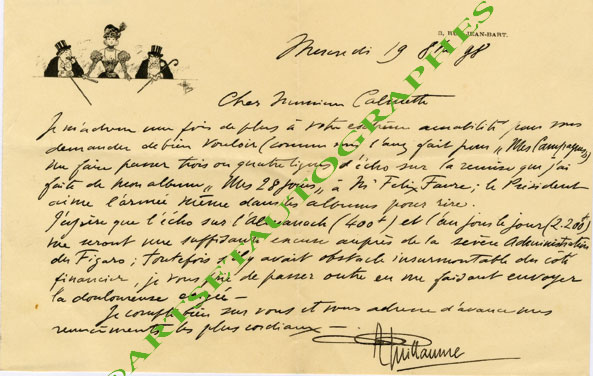 3, RUE JEAN-BART.
Mercredi 19 8bre 98
Cher Monsieur Calmette
Je m'adresse une fois de plus à votre extrême amabilité, pour vous
demander de bien vouloir (comme vous l'avez fait pour "Mes Campagnes")
me faire passer trois ou quatre lignes d'écho sur la remise que j'ai
faite de mon album "Mes 28 jours", à Mr Félix Faure; le Président
aime l'armée même dans les albums pour rire.
J'espère que l'écho sur l'Almanach (400f) et l'au jour le jour (2.200f)
me seront une suffisante excuse auprès de la sévère Administration
du Figaro; toutefois s'il y avait obstacle insurmontable du côté
financier, je vous prie de passer outre en me faisant envoyer
la douloureuse exigée —
Je compte bien sur vous et vous adresse d'avance mes
remerciements les plus cordiaux —
AGuillaume
ARTS ET AUTOGRAPHES